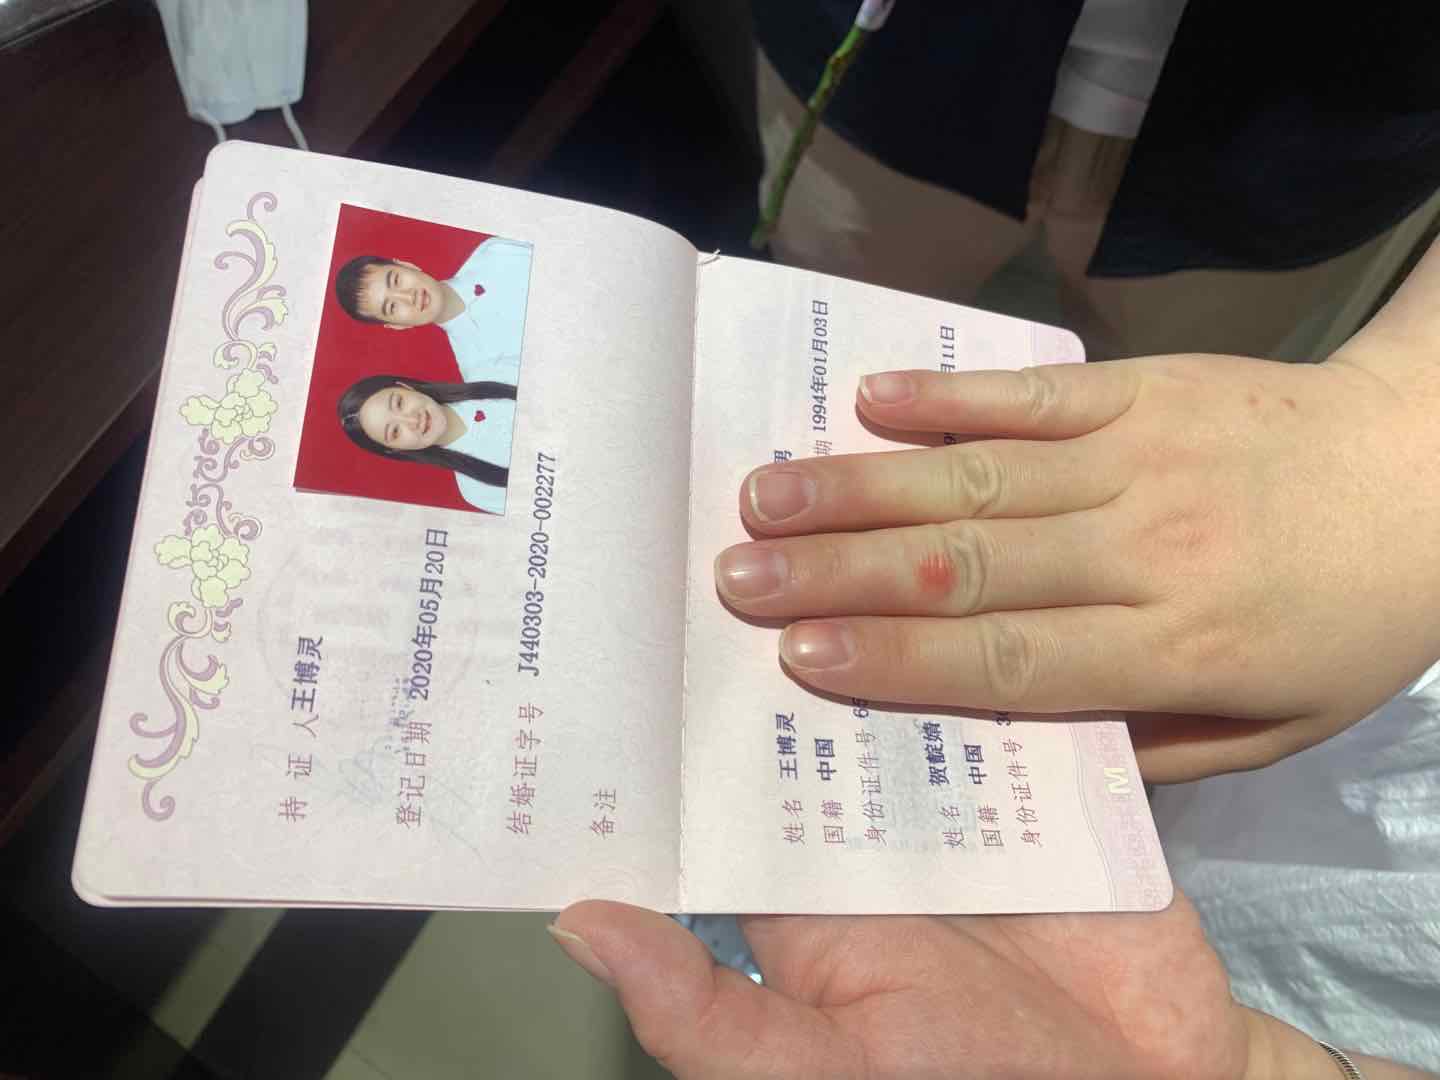 持 证 人 王博灵
登记日期 2020年05月20日
结婚证字号 J440303-2020-002277
备注
姓名 王博灵 男
国籍 中国 期 1994年01月03日
身份证件号 65
姓名 贺靛婧
国籍 中国 月11日
身份证件号 3
M